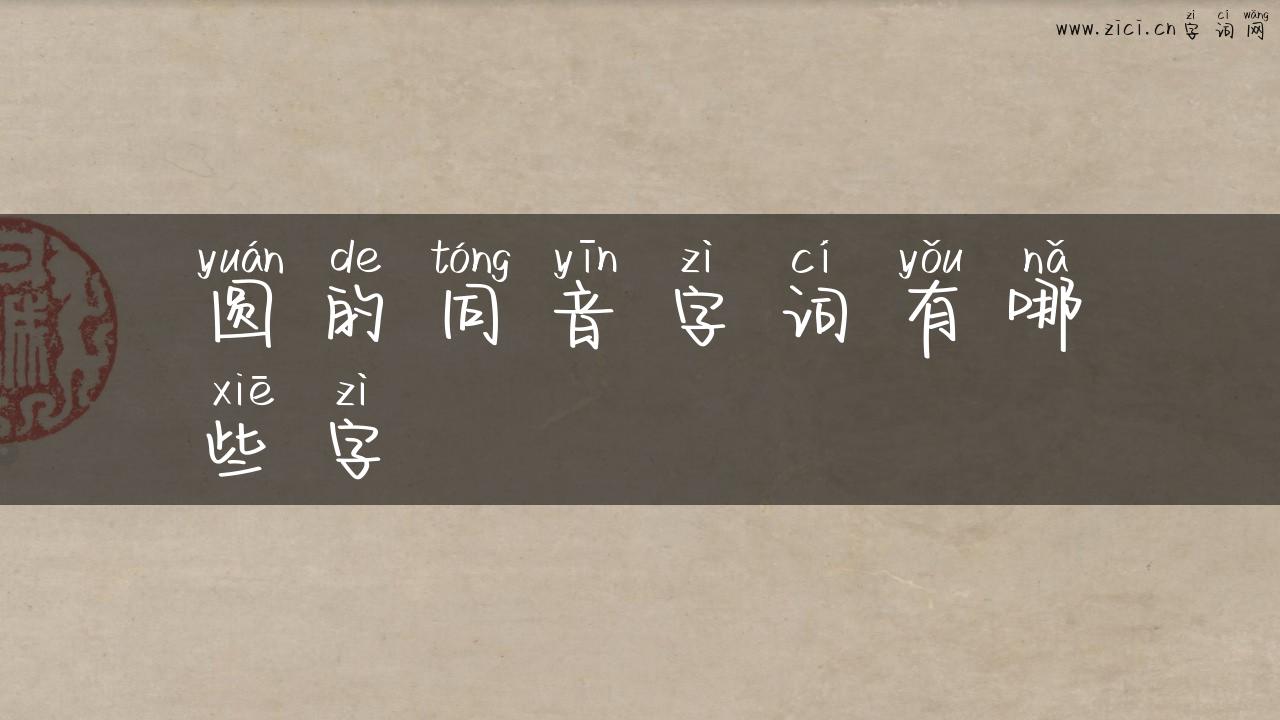 zì cí wǎng
www.zici.cn字词网
yuán de tóng yīn zì cí yǒu nǎ
圆的同音字词有哪
xiē zì
些字